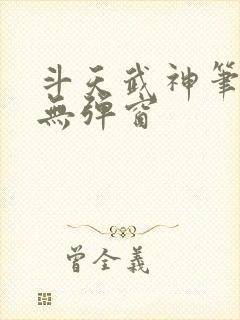 斗天武神筆
無彈窗
曾全義